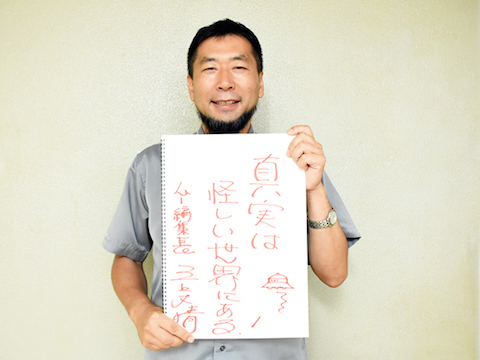 真実は
怪しい世界にある!
ムー編集長 三上丈晴